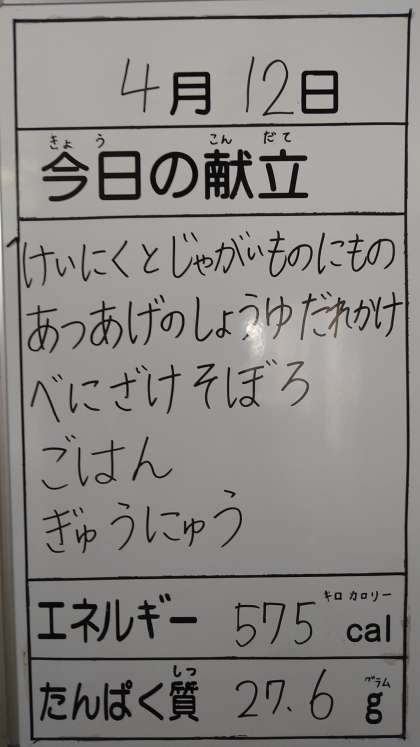 4月12日
きょう こんだて
今日の献立
けいにくとじゃがいものにもの
あつあげのしょうゆだれかけ
べにざけそぼろ
ごはん
ぎゅうにゅう
キロカロリー
エネルギー 575 cal
しつ グラム
たんぱく質 27.6 g